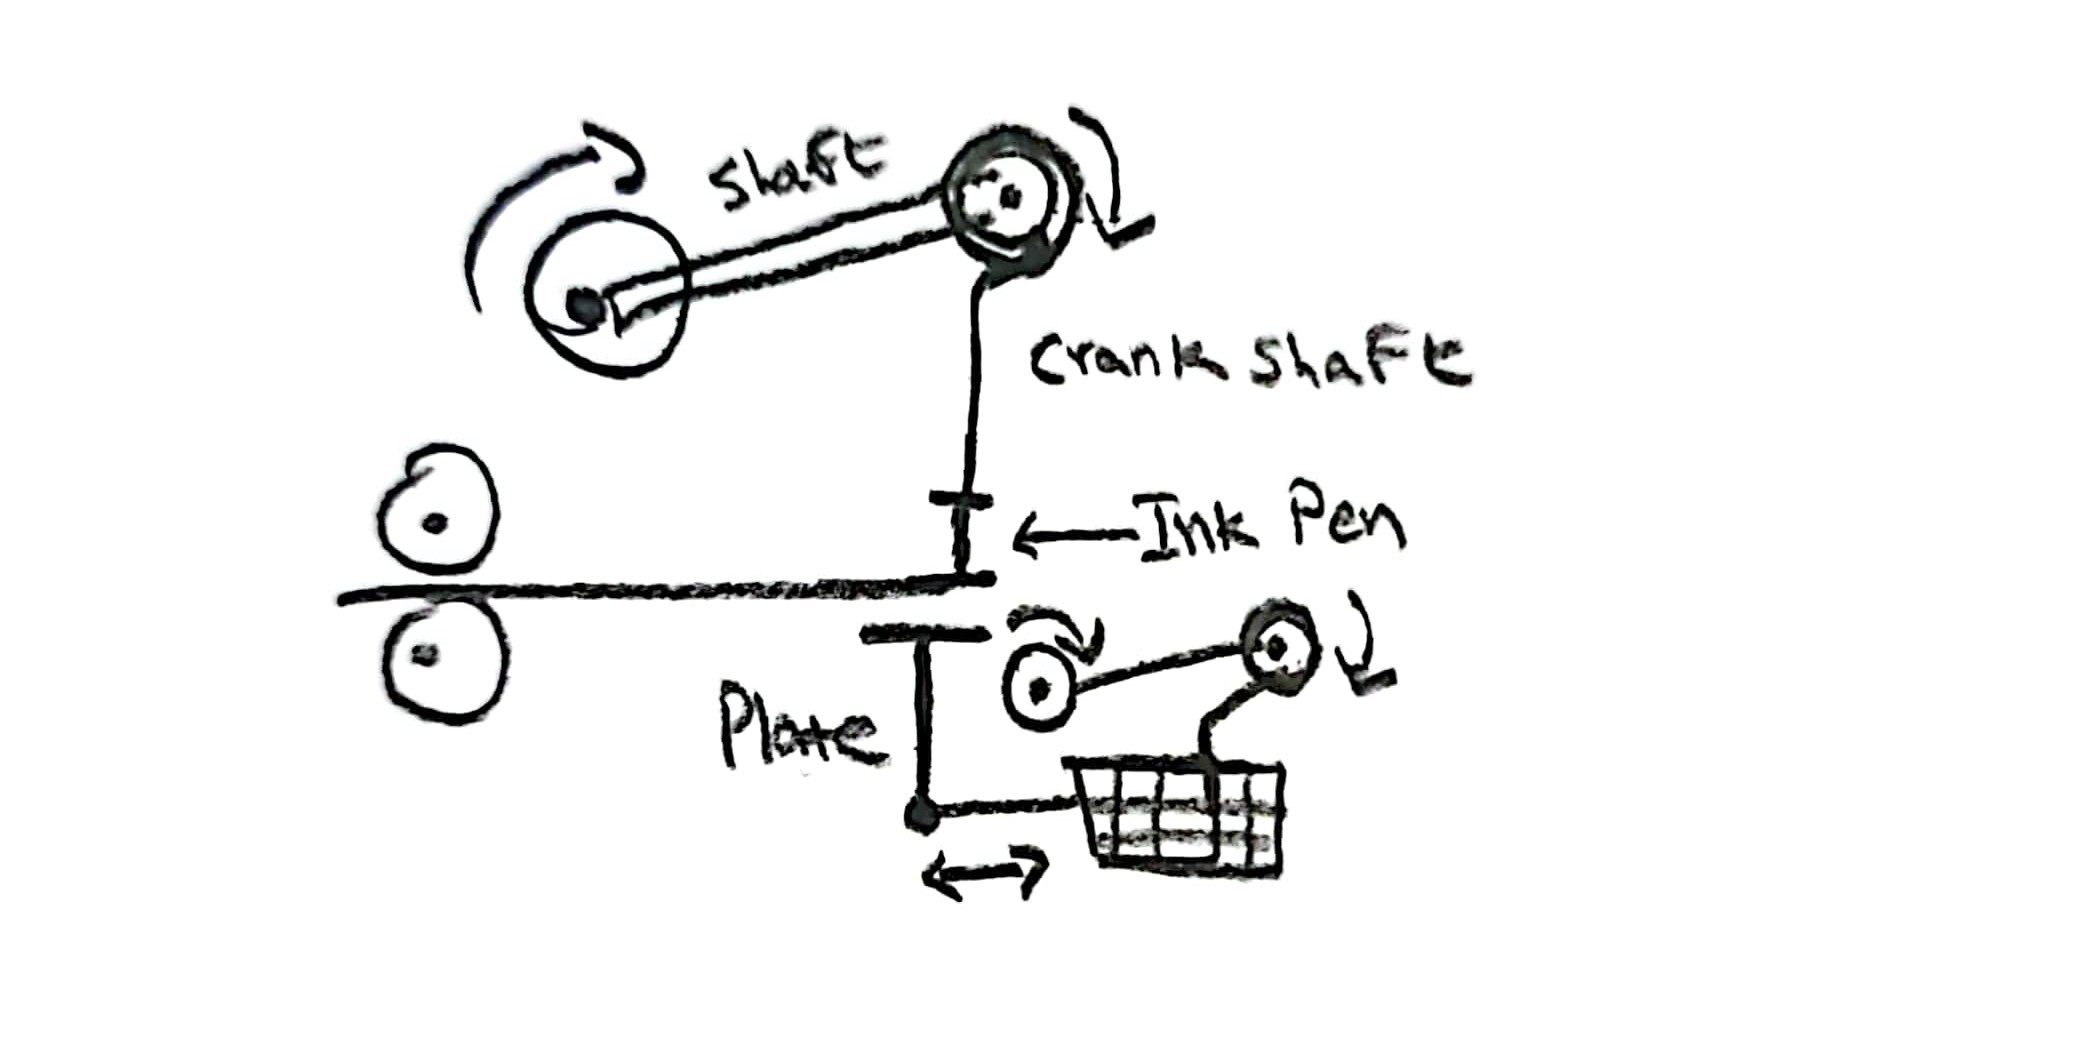 Shaft
Crank Shaft
Ink Pen
Plate